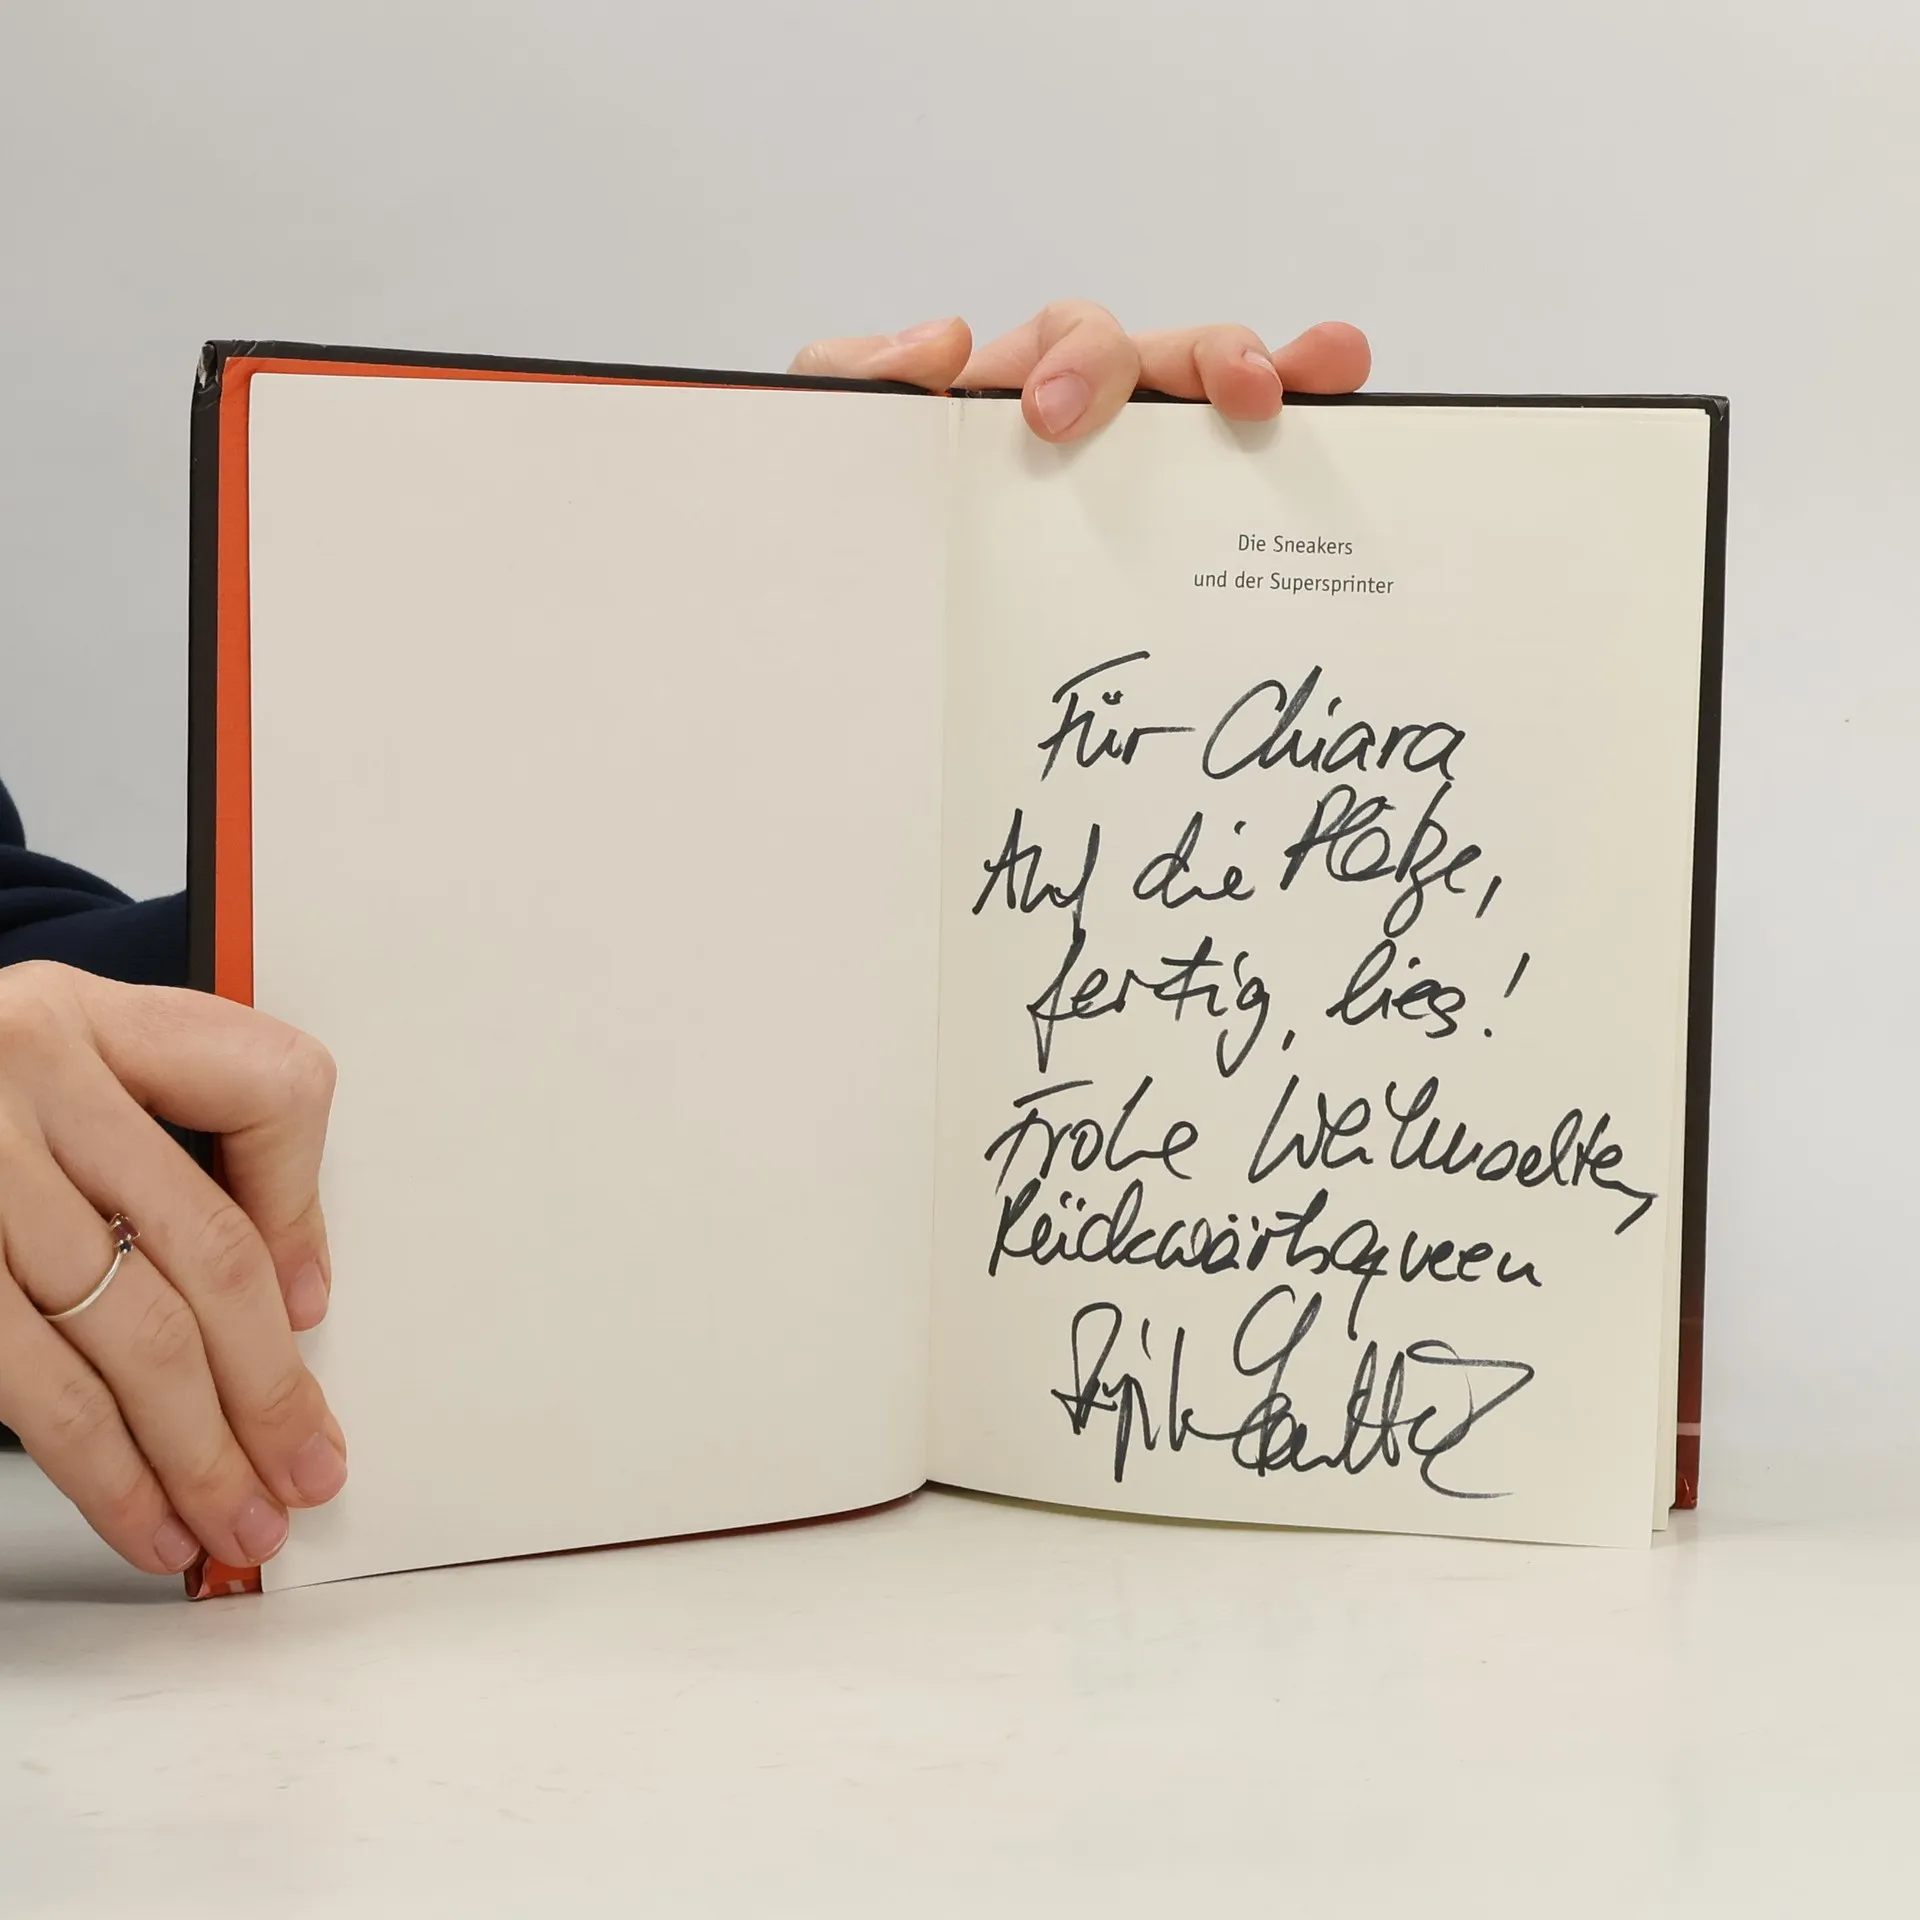 Die Sneakers
und der Supersprinter
Für Chiara
Auf die Plätze,
fertig, lies!
Frohe Weihnachten,
Rückwärtsqueen